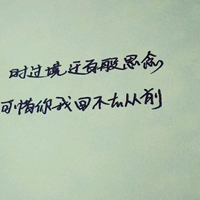 时过境迁百般思念
可惜你我回不去从前